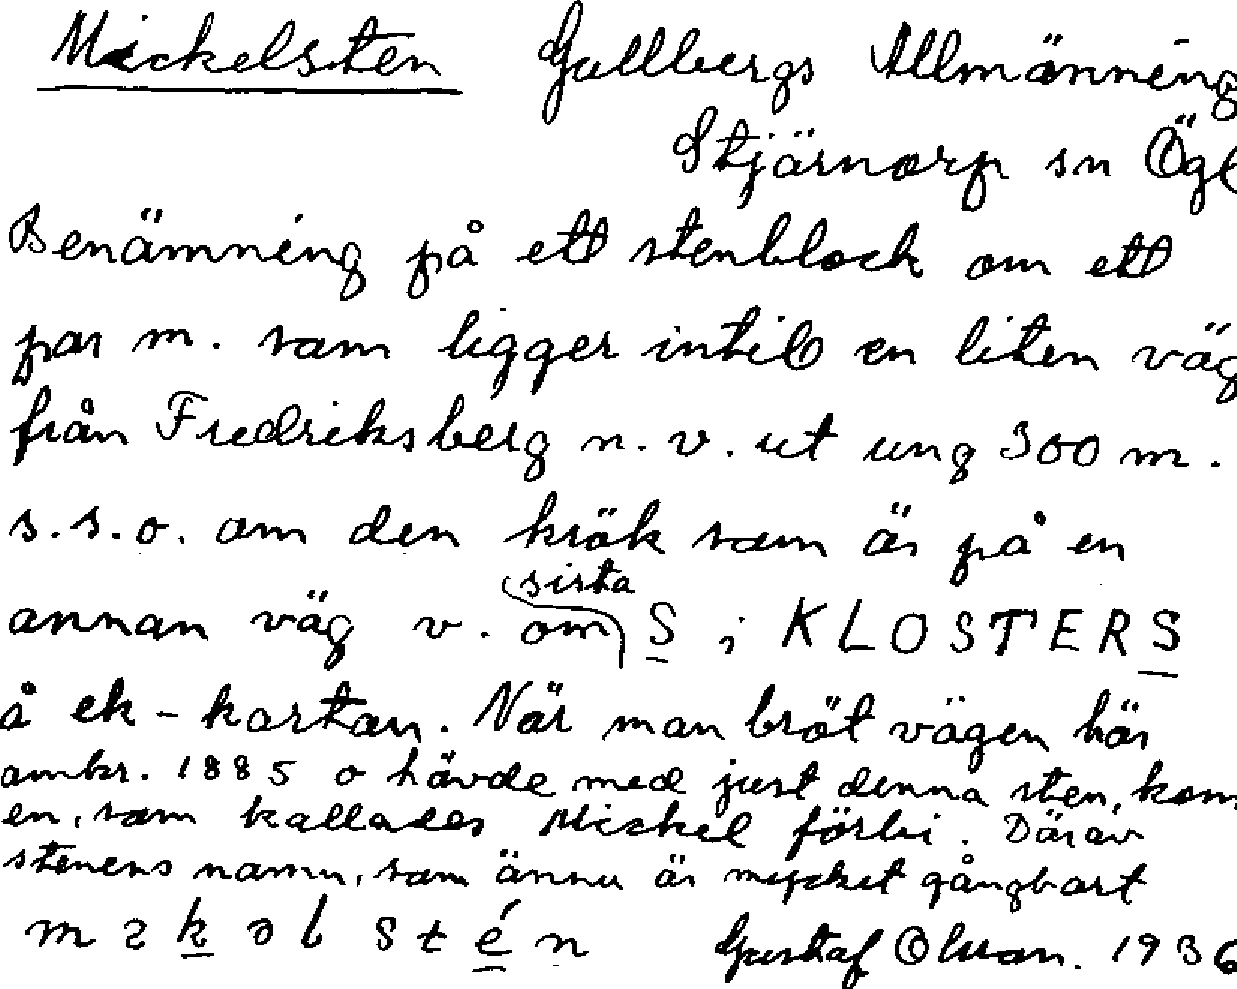 Mickelsten Gullbergs Allmänning
Stjärnorp sn Ögl
Benämning på ett stenblock om ett
par m. som ligger intill en liten väg
från Fredriksberg n.v. ut ung 300 m.
s.s.o. om den krök som är på en
annan väg v. om sista S i KLOSTERS
å ek-kartan. När man bröt vägen här
omkr. 1885 o hävde med just denna sten, kom
en, som kallades Mickel förbi. Därav
stenens namn, som ännu är mycket gångbart
Gustaf Olsson. 1936